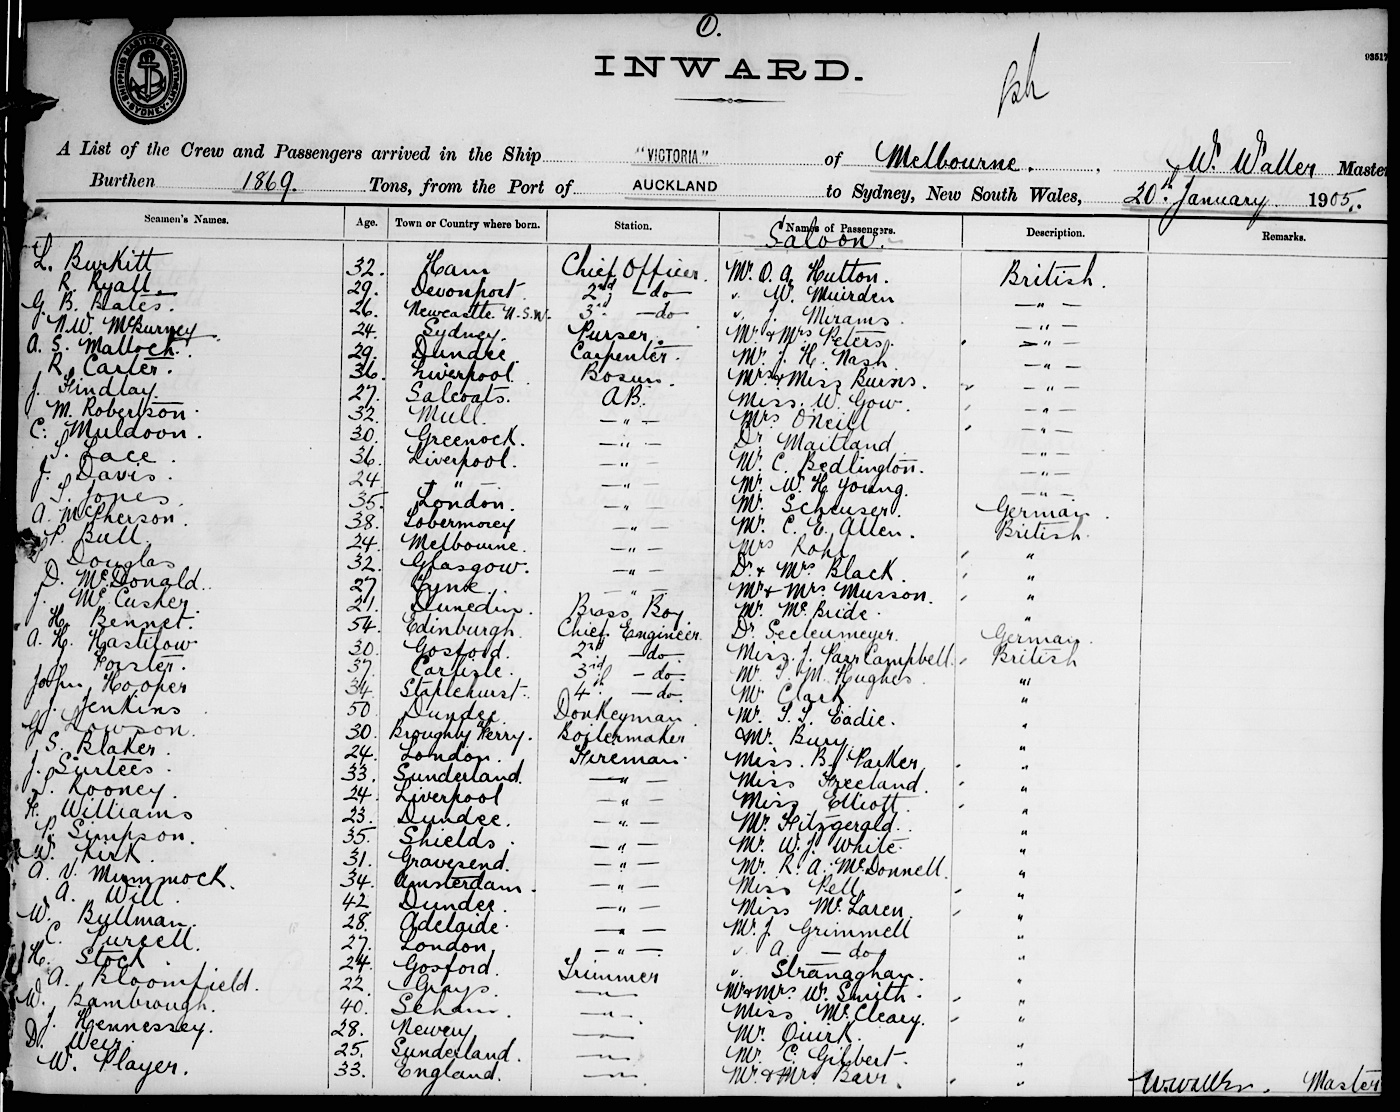 1.
INWARD.
93517
SHIPPING MASTERS DEPARTMENT SYDNEY
A List of the Crew and Passengers arrived in the Ship "VICTORIA" of Melbourne. W. Waller Master
Burthen 1869. Tons, from the Port of AUCKLAND to Sydney, New South Wales, 20th January 1905.
Seamen's Names. Age. Town or Country where born. Station. Names of Passengers. Description. Remarks.
Saloon.
L. Burkitt 32. Ham Chief Officer Mr. O. A. Hutton. British.
R. Ryall 29. Devonport. 2nd — do — " W. Muirden — " —
G. B. Bates. 26. Newcastle N.S.W. 3rd — do — " J. Mirams. — " —
N.W. McBurney 24. Sydney. Purser. Mr. & Mrs. Peters. — " —
A. S. Malloch. 29. Dundee Carpenter. Mr. J. H. Nash — " —
R. Carter. 36. Liverpool Bosun. Mrs. & Miss Burns. — " —
J. Findlay. 27. Salcoats. AB. Miss. W. Gow. — " —
M. Robertson. 32. Mull. — " — Mrs O'Neill — " —
C. Muldoon. 30. Greenock. — " — Dr. Maitland — " —
Lace. 36. Liverpool. — " — Mr. C. Bedlington. — " —
J. Davis. 24 — " — — " — Mr. W. H. Young. — " —
Jones 35. London. — " — Mr. Scheuser. German.
A. McPherson. 38. Tobermorey — " — Mr. C. E. Allen. British.
P. Bull. 24. Melbourne. — " — Mrs Rohl "
Douglas 32. Glasgow. — " — Dr. & Mrs. Black. "
D. McDonald. 27 Tyne. — " — Mr & Mrs. Musson. "
J. McCusker. 21. Dunedin. Brass Boy. Mr. McBride. "
H. Bennet. 54. Edinburgh. Chief Engineer. Dr. German.
A. H. Hastilow 30. Gosford. 2nd — do. Miss. J. Parr Campbell. British
Forster. 37. Carlisle. 3rd — do. Mr. T. M. Hughes. "
John Hooper 34. Staplehurst. 4th — do. Mr Clark. "
J. Jenkins 50. Dundee. Donkeyman. Mr. Eadie. "
G. Lowson. 30. Broughty Ferry. Boilermaker Mr. Bury. "
S. Blaker. 24. London. Fireman. Miss. B. J. Parker "
J. Surtees. 33. Sunderland. — " — Miss Freeland. "
Rooney. 24. Liverpool — " — Miss Elliott. "
H. Williams 23. Dundee. — " — Mr. Fitzgerald. "
P. Simpson. 35. Shields. — " — Mr. W. J. White. "
W. Kirk. 31. Gravesend. — " — Mr. R. A. McDonnell. "
A. V. Mummock. 34. Amsterdam. — " — Miss Pell. "
A. Will. 42 Dundee. — " — Miss McLaren. "
W. Bullman. 28. Adelaide. — " — Mr. J. Grimmell "
C. Purcell. 27. London — " — " A. — do — "
H. Stock 24. Gosford. Trimmer " Stranaghan. "
A. Bloomfield. 22. Grays. — " — Mr & Mrs. W. Smith. "
W. Bambrough. 40. Seham. — " — Miss McCleary. "
J. Hennessey. 28. Newry — " — Mr. Quirk. "
D. Weir. 25. Sunderland. — " — Mr. C. Gilbert. "
W. Player. 33. England. — " — Mr. & Mrs Barr. "
W. Waller. Master